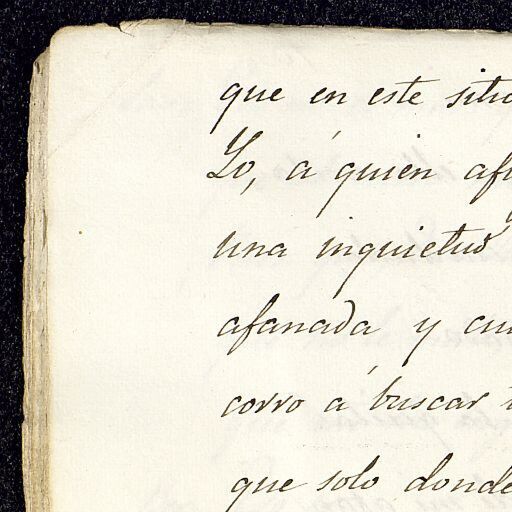 que en este sitio
Yo, á quien
una inquietud
afanada y
corro á buscar
que solo donde